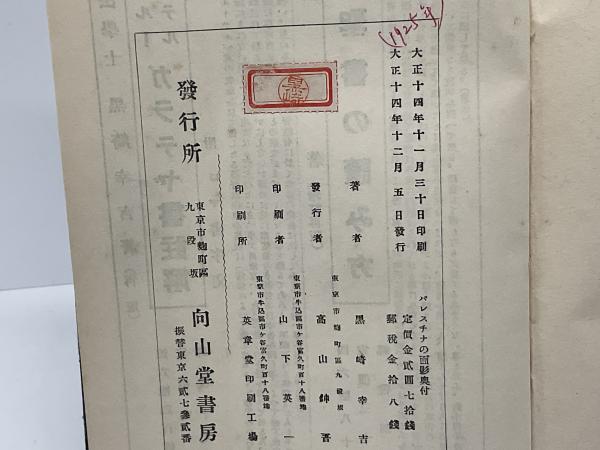 (1925年)
パレスチナの面影奥付
定價金貳圓七拾錢
郵税金拾八錢
大正十四年十一月三十日印刷
大正十四年十二月五日發行
著者 黒崎幸吉
東京市麴町區九段坂
發行者 高山鉀晋
東京市牛込區市ケ谷富久町百十八番地
印刷者 山下英一
東京市牛込區市ケ谷富久町百十八番地
印刷所 英章堂印刷工場
黒崎
發行所 東京市麴町區九段坂 向山堂書房
振替東京六貳七參貳番